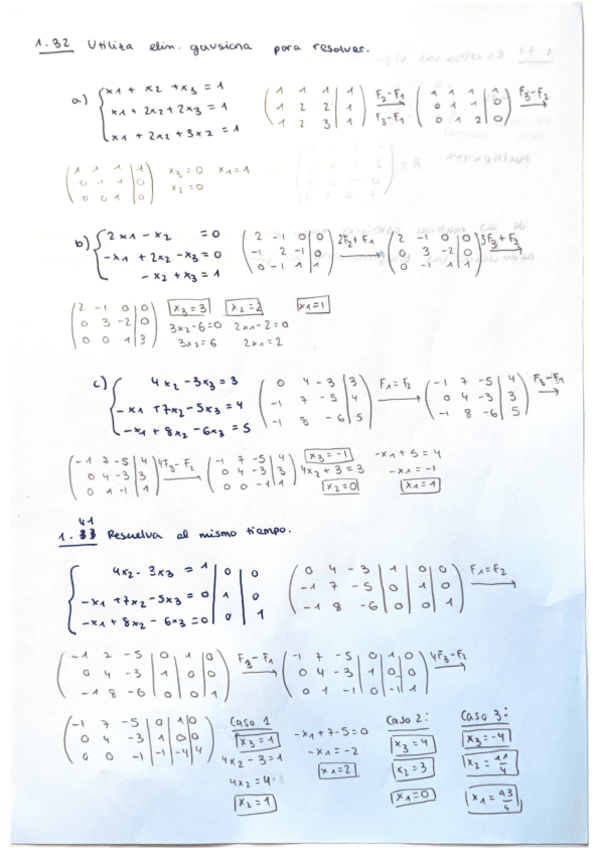 1.32 Utiliza elim. gausiana para resolver.
a) { x1 + x2 + x3 = 1
x1 + 2x2 + 2x3 = 1
x1 + 2x2 + 3x2 = 1
( 1 1 1 | 1
1 2 2 | 1
1 2 3 | 1 )
F2-F1
F3-F1
( 1 1 1 | 1
0 1 1 | 0
0 1 2 | 0 )
F3-F2
( 1 1 1 | 1
0 1 1 | 0
0 0 1 | 0 )
x3 = 0 x1 = 1
x2 = 0
b) { 2x1 - x2 = 0
-x1 + 2x2 - x3 = 0
- x2 + x3 = 1
( 2 -1 0 | 0
-1 2 -1 | 0
0 -1 1 | 1 )
2F2 + F1
( 2 -1 0 | 0
0 3 -2 | 0
0 -1 1 | 1 )
3F3 + F2
( 2 -1 0 | 0
0 3 -2 | 0
0 0 1 | 3 )
x3 = 3 x2 = 2 x1 = 1
3x2 - 6 = 0 2x1 - 2 = 0
3x2 = 6 2x1 = 2
c) { 4x2 - 3x3 = 3
-x1 + 7x2 - 5x3 = 4
-x1 + 8x2 - 6x3 = 5
( 0 4 -3 | 3
-1 7 -5 | 4
-1 8 -6 | 5 )
F1 = F2
( -1 7 -5 | 4
0 4 -3 | 3
-1 8 -6 | 5 )
F3 - F1
( -1 7 -5 | 4
0 4 -3 | 3
0 1 -1 | 1 )
4F3 - F2
( -1 7 -5 | 4
0 4 -3 | 3
0 0 -1 | 1 )
x3 = -1 -x1 + 5 = 4
4x2 + 3 = 3 -x1 = -1
x2 = 0 x1 = 1
41
1.33 Resuelva al mismo tiempo.
{ 4x2 - 3x3 = 1 | 0 | 0
-x1 + 7x2 - 5x3 = 0 | 1 | 0
-x1 + 8x2 - 6x3 = 0 | 0 | 1
( 0 4 -3 | 1 | 0 | 0
-1 7 -5 | 0 | 1 | 0
-1 8 -6 | 0 | 0 | 1 )
F1 = F2
( -1 7 -5 | 0 | 1 | 0
0 4 -3 | 1 | 0 | 0
-1 8 -6 | 0 | 0 | 1 )
F3 - F1
( -1 7 -5 | 0 | 1 | 0
0 4 -3 | 1 | 0 | 0
0 1 -1 | 0 | -1 | 1 )
4F3 - F2
( -1 7 -5 | 0 | 1 | 0
0 4 -3 | 1 | 0 | 0
0 0 -1 | -1 | -4 | 4 )
Caso 1
x3 = 1
4x2 - 3 = 1
4x2 = 4
x2 = 1
-x1 + 7 - 5 = 0
-x1 = -2
x1 = 2
Caso 2:
x3 = 4
x2 = 3
x1 = 0
Caso 3:
x3 = -4
x2 = 11/4
x1 = 93/4